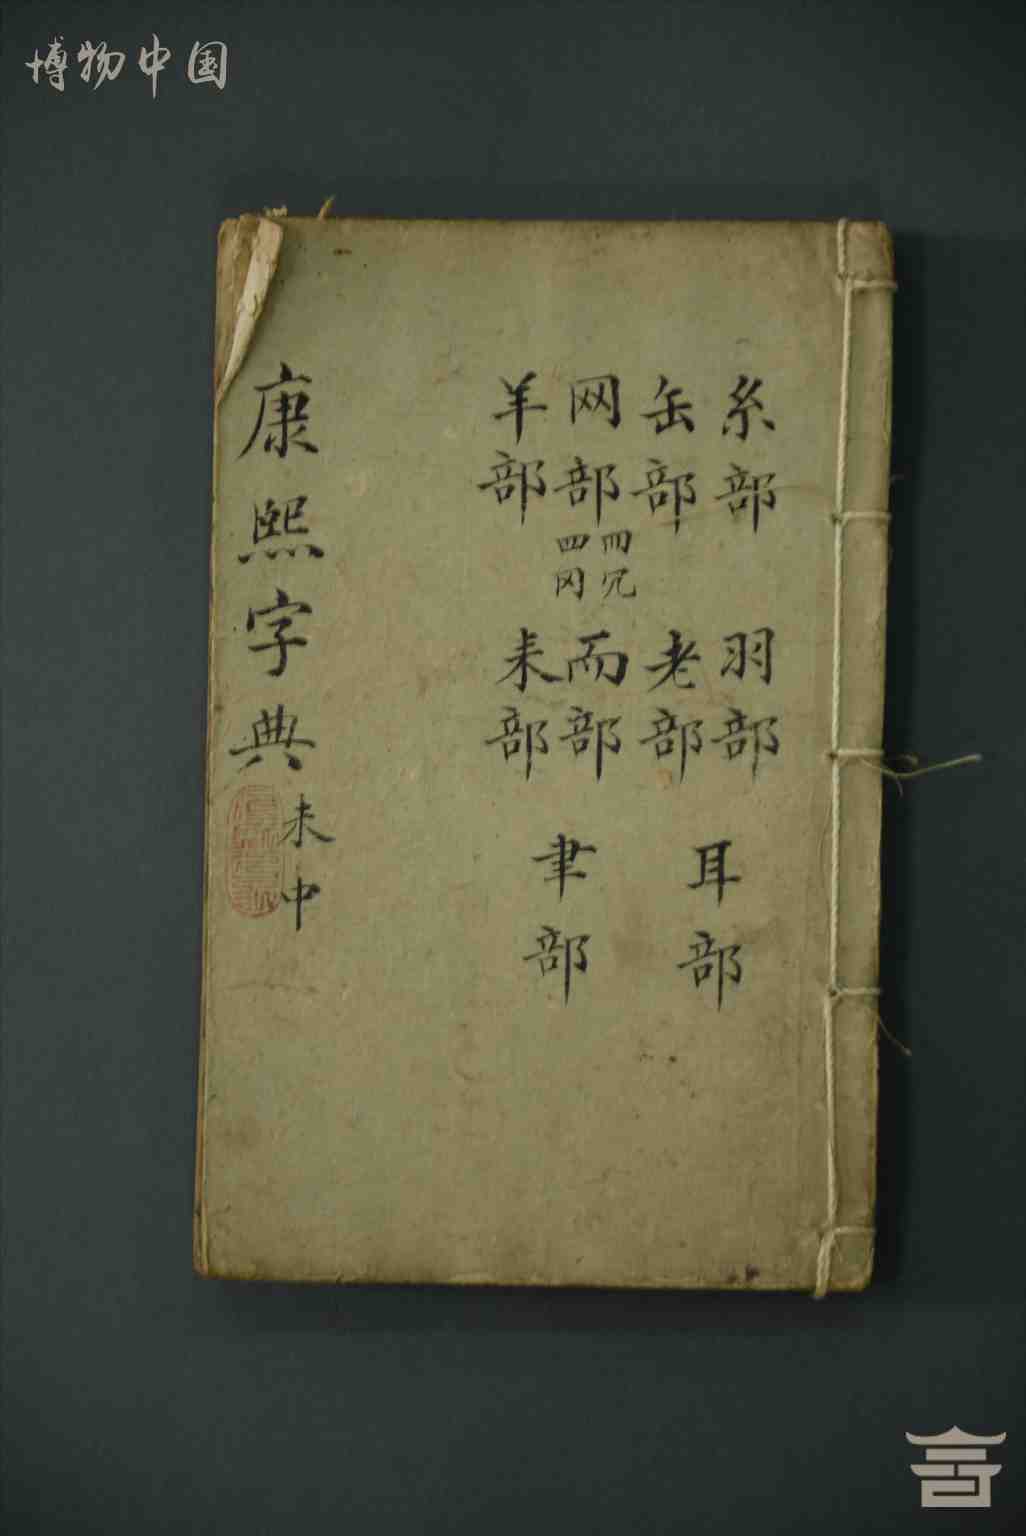 博物中国
糸部
缶部
网部
罒㓁
四冈
羊部
羽部
老部
而部
耒部
耳部
聿部
康熙字典
未中